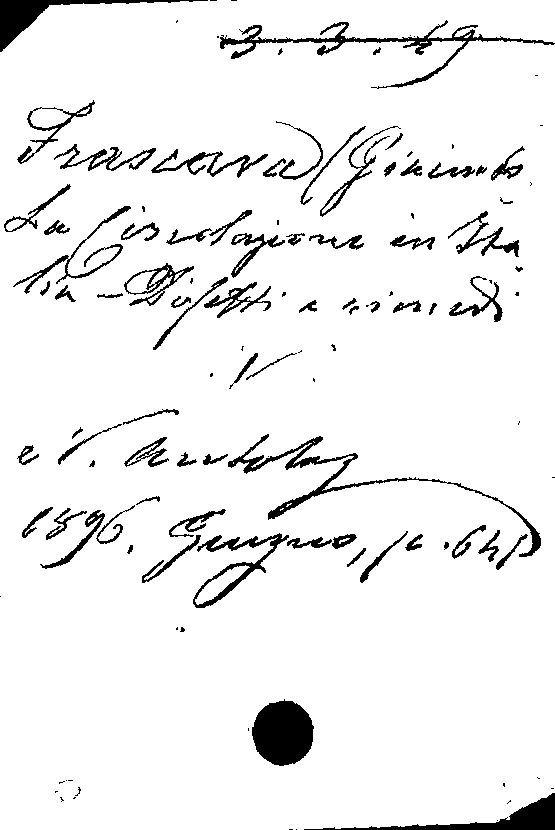 3. 3. 49
Frascara (Giacinto
La Circolazione in Ita
lia - Difetti e rimedi
V
N. Antolog
1896. Giugno, p. 645